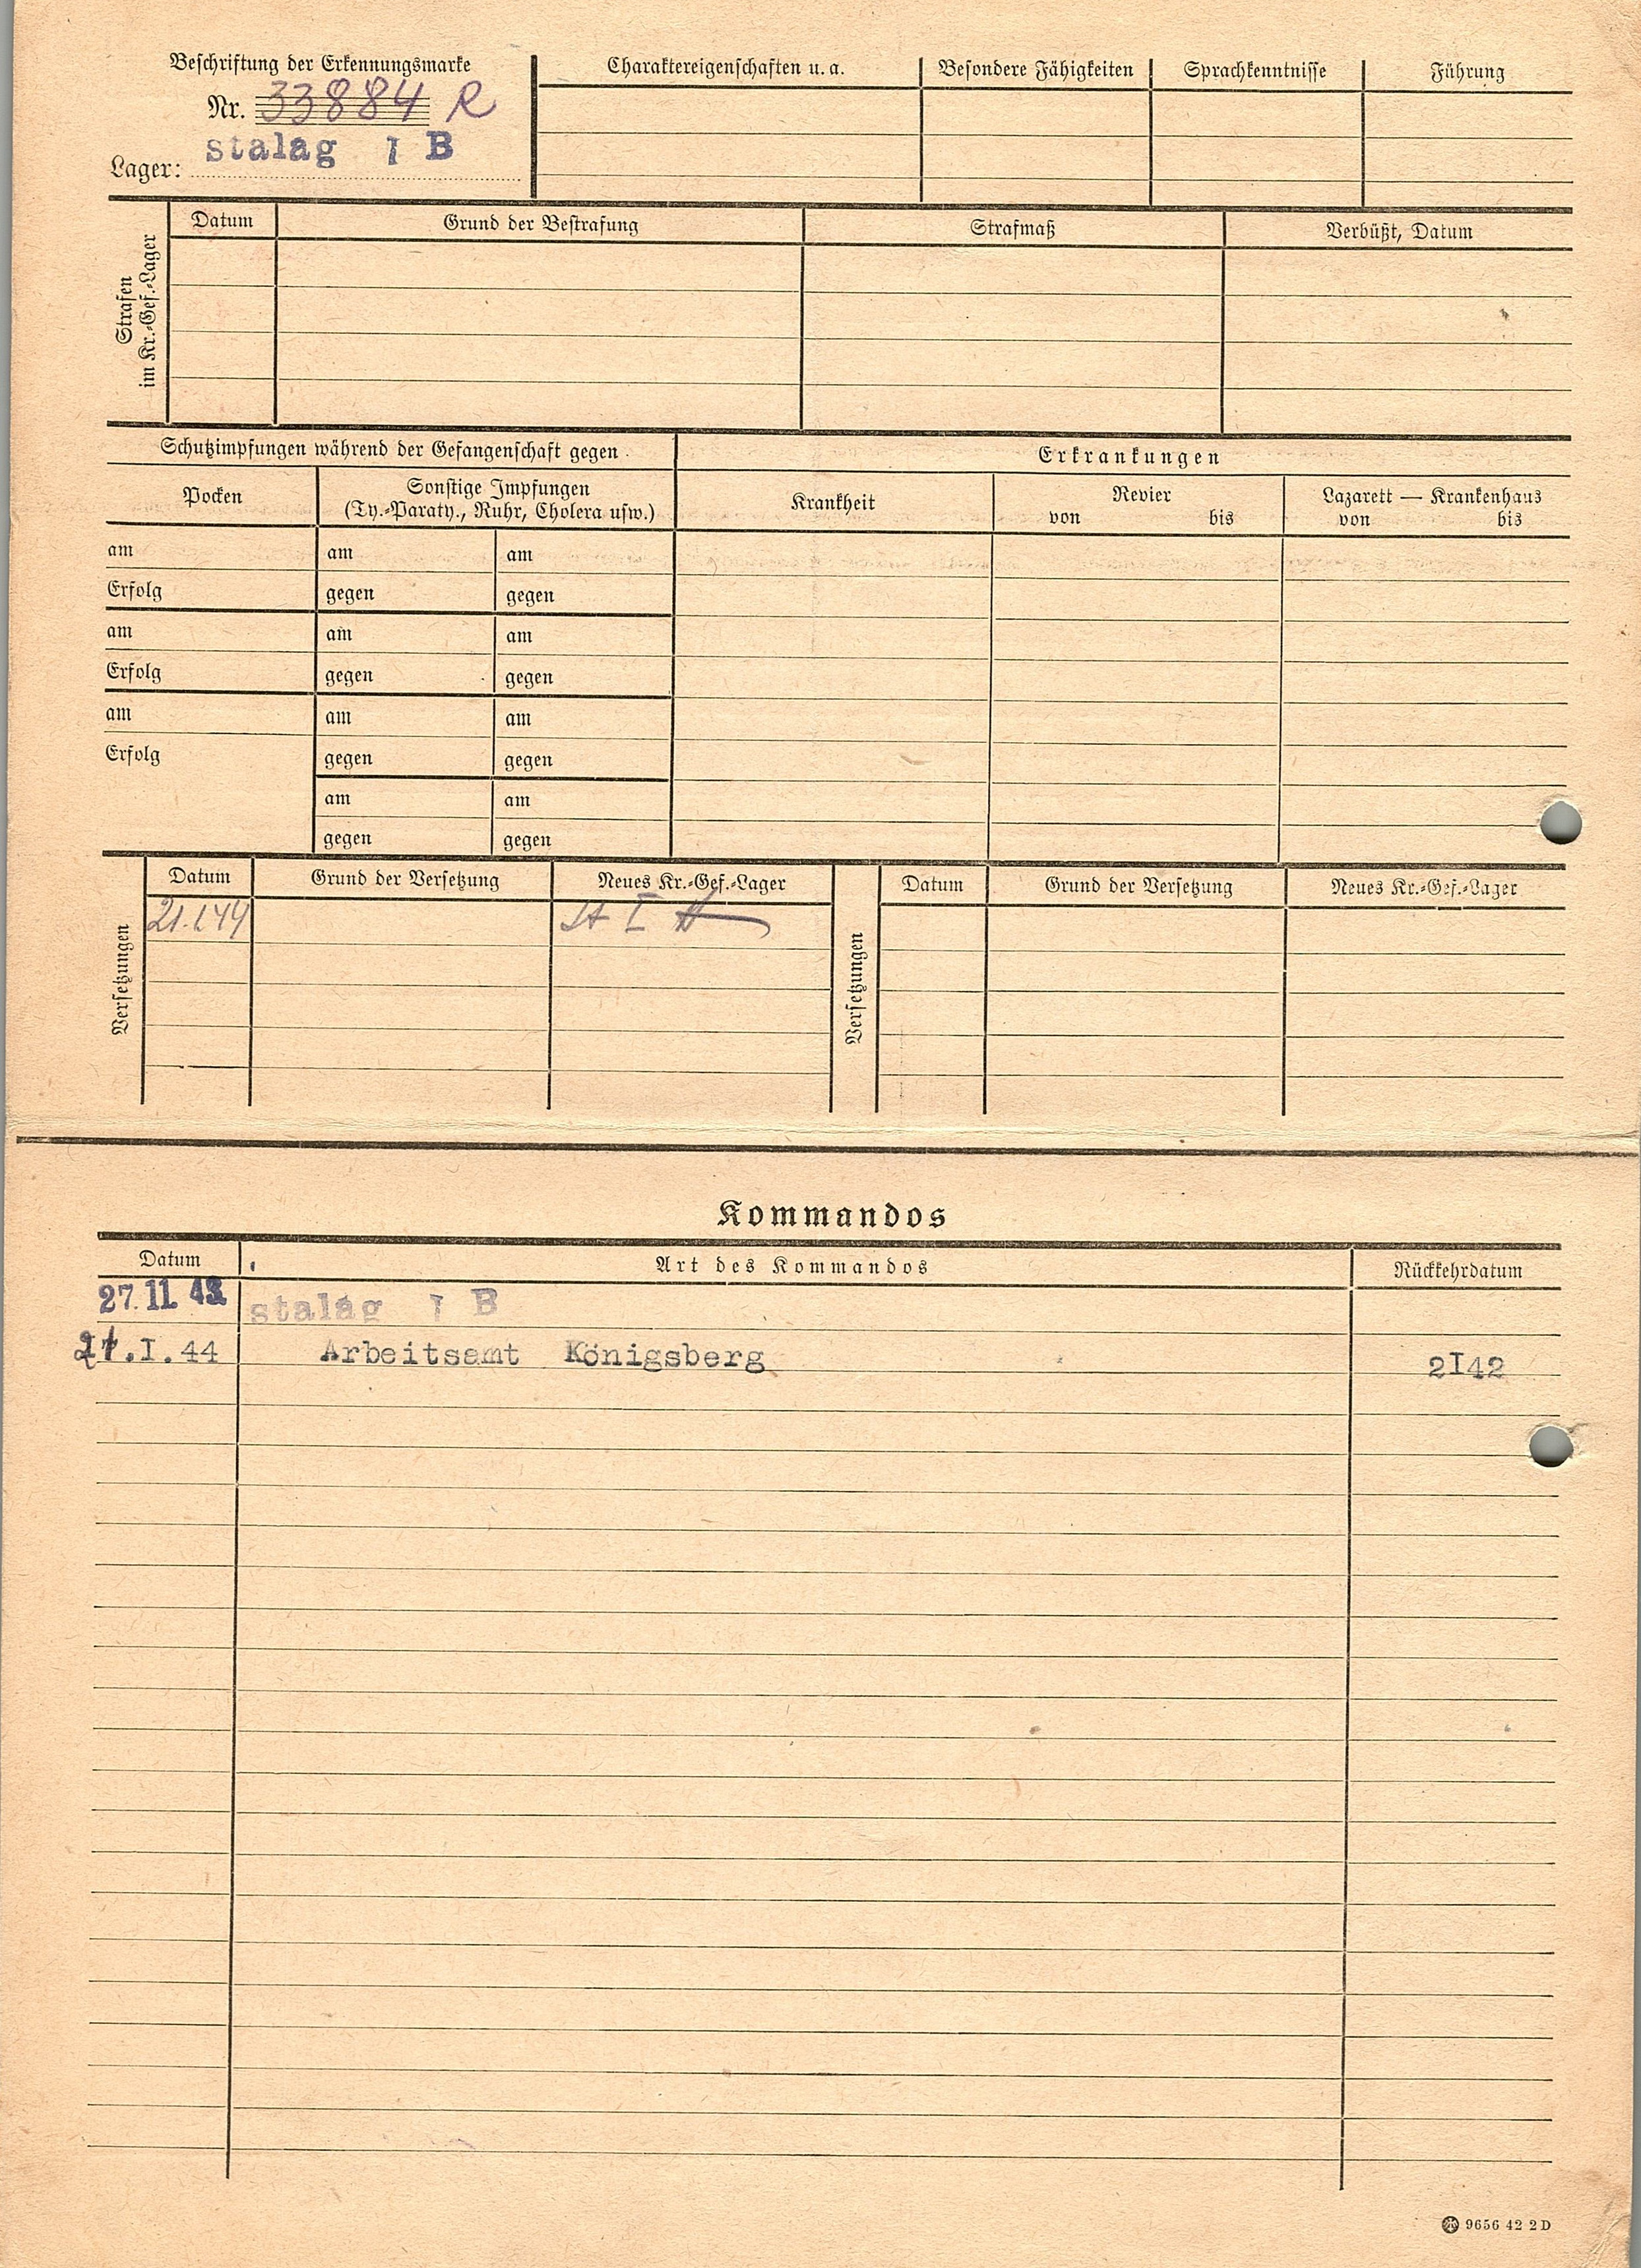 Beschriftung der Erkennungsmarke
Nr. 33884 R
Lager: stalag I B
Charaktereigenschaften u. a.
Besondere Fähigkeiten
Sprachkenntnisse
Führung
Strafen
im Kr.-Gef.-Lager
Datum
Grund der Bestrafung
Strafmaß
Verbüßt, Datum
Schutzimpfungen während der Gefangenschaft gegen
Erkrankungen
Pocken
Sonstige Impfungen
(Ty.-Paraty., Ruhr, Cholera usw.)
Krankheit
Revier
von bis
Lazarett — Krankenhaus
von bis
am am am
Erfolg gegen gegen
am am am
Erfolg gegen gegen
am am am
Erfolg gegen gegen
am am
gegen gegen
Versetzungen
Datum Grund der Versetzung Neues Kr.-Gef.-Lager
21.1.44 St I A
Versetzungen
Datum Grund der Versetzung Neues Kr.-Gef.-Lager
Kommandos
Datum Art des Kommandos Rückkehrdatum
27. 11. 43 stalag I B
21.I.44 Arbeitsamt Königsberg 2I42
9656 42 2 D